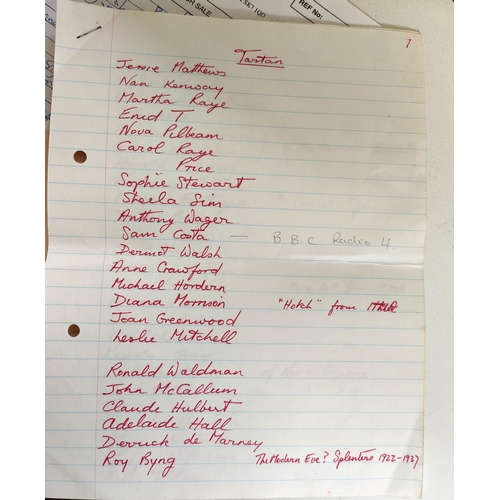 SK7 1QD
REF No:
R SALE
7
Tartan
Jessie Matthews
Nan Kenway
Martha Raye
Enid T
Nova Pilbeam
Carol Raye
Price
Sophie Stewart
Sheila Sim
Anthony Wager
Sam Costa — B.B.C Radio 4
Dermot Walsh
Anne Crawford
Michael Hordern
Diana Morrison "Hotch" from
Joan Greenwood
Leslie Mitchell
Ronald Waldman
John McCallum
Claude Hulbert
Adelaide Hall
Derrick de Marney
Roy Byng The Modern Eve? Splinters 1922-1937